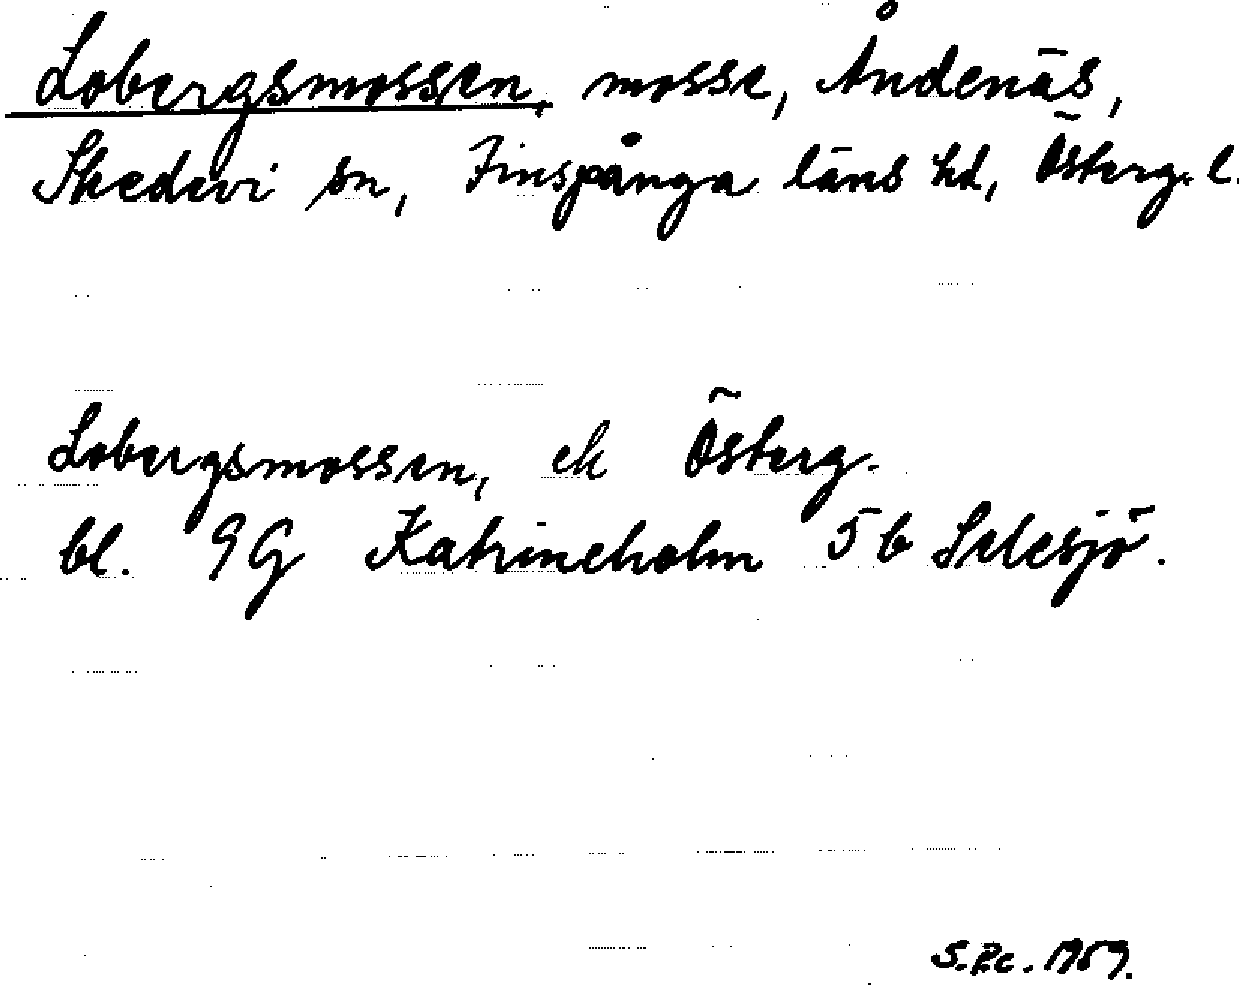 Lobergsmossen, mosse, Åndenäs,
Skedevi sn, Finspånga läns hd, Österg. l.
Lobergsmossen, ek Österg.
bl. 9G Katrineholm 5b Selesjö.
1959.